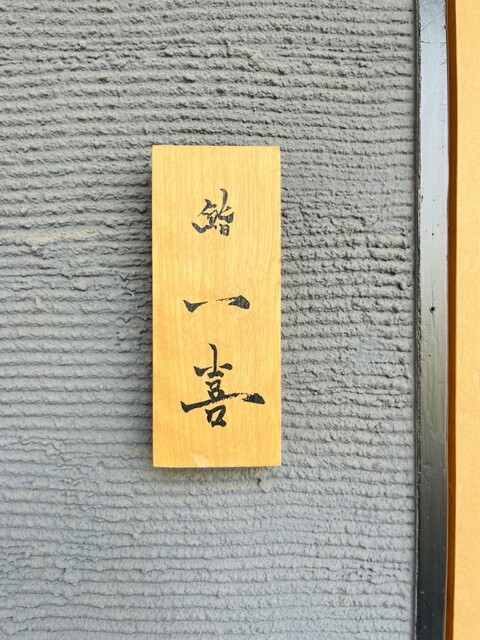 鮨 一喜